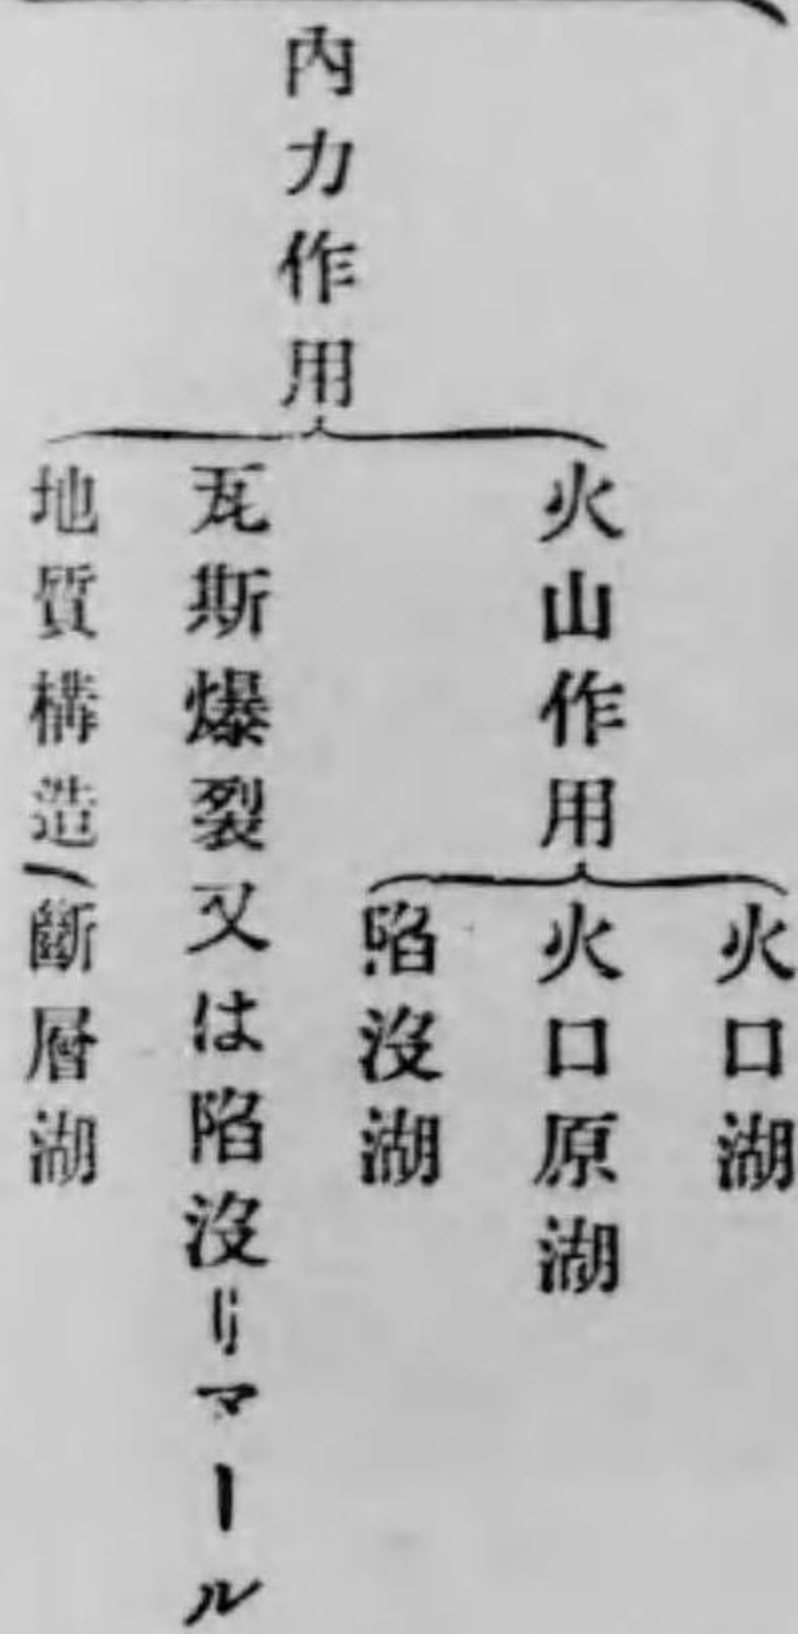 內力作用
火山作用
火口湖
火口原湖
陷沒湖
瓦斯爆裂又は陷沒＝マール
地質構造
斷層湖